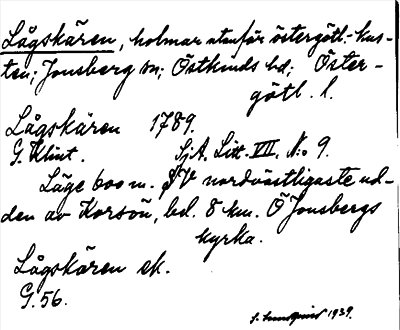 Lågskären, holmar utanför östergötl.-kus-
ten; Jonsberg sn; Östkinds hd; Öster-
götl. l.
Lågskären 1789.
G. Klint. SjA. Litt. VII. No 9.
Läge 600 m. SV nordvästligaste ud-
den av Korsön, bel. 8 km. Ö Jonsbergs
kyrka.
Lågskären ek.
G. 56.
1939.